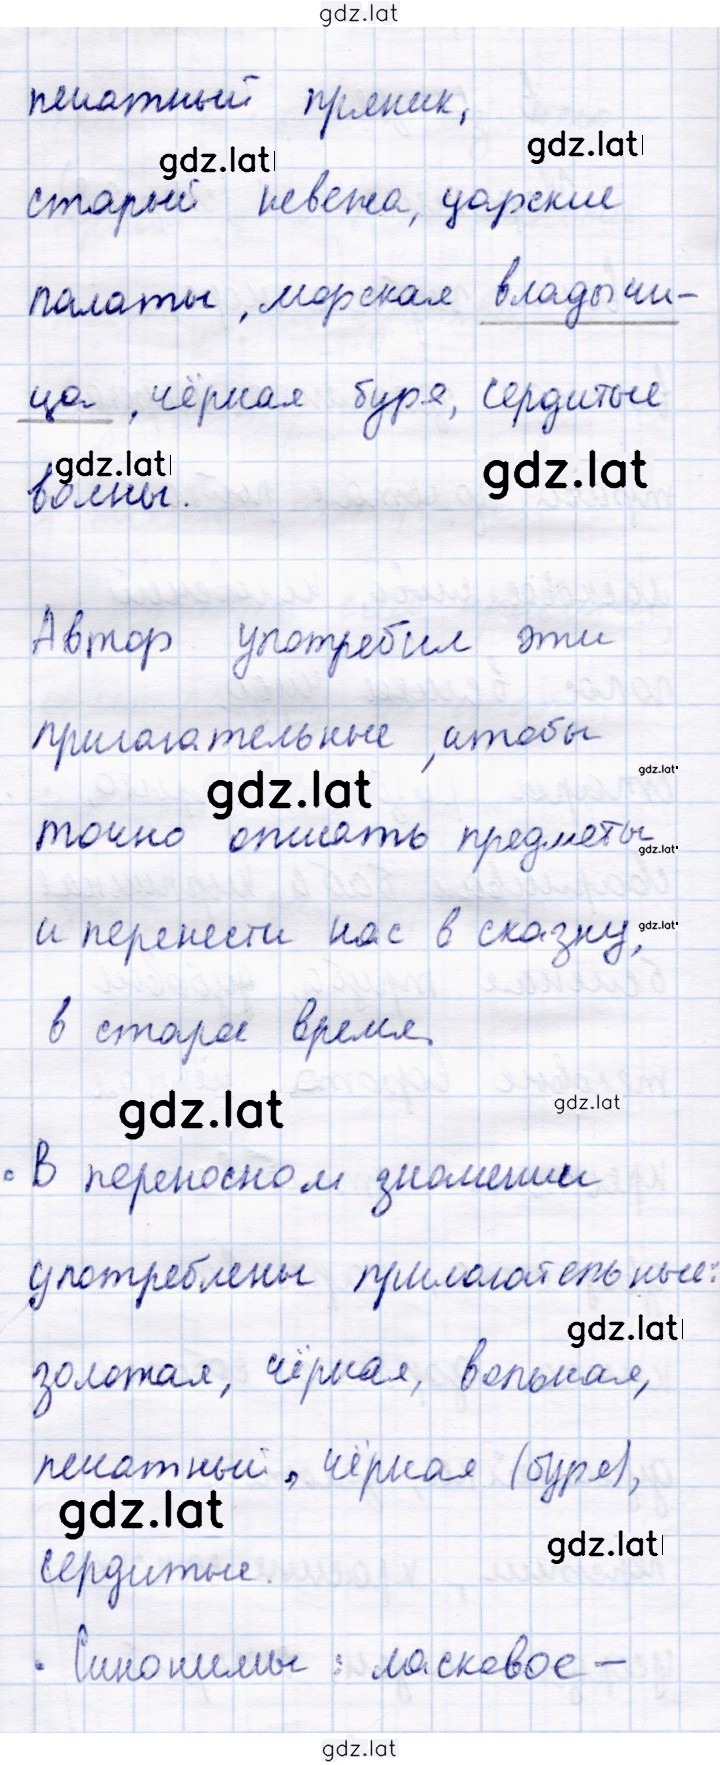 gdz.lat
печатный пряник,
gdz.lat
gdz.lat
старый невежа, царские
палаты, морская владычи-
ца, чёрная буря, сердитые
gdz.lat
gdz.lat
волны.
Автор употребил эти
прилагательные, чтобы
gdz.lat
gdz.lat
точно описать предметы
gdz.lat
и перенести нас в сказку,
gdz.lat
в старое время.
gdz.lat
gdz.lat
• В переносном значении
употреблены прилагательные:
gdz.lat
золотая, чёрная, вольная,
печатный, чёрная (буря),
gdz.lat
gdz.lat
сердитые.
• Синонимы: ласковое –
gdz.lat